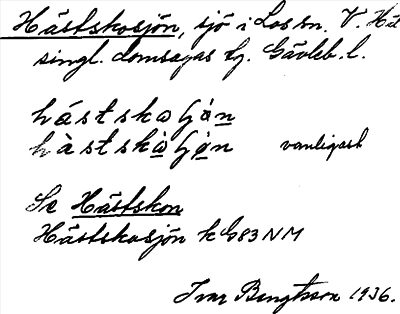 Hästskosjön, sjö i Los sn. V. Häl
singl. domsagas tg. Gävleb. l.
hástskaʃǫ́n
hàstskàʃǫn vanligast
Se Hästskon
Hästskosjön k G83 NM
Ivar Bengtsson 1936.